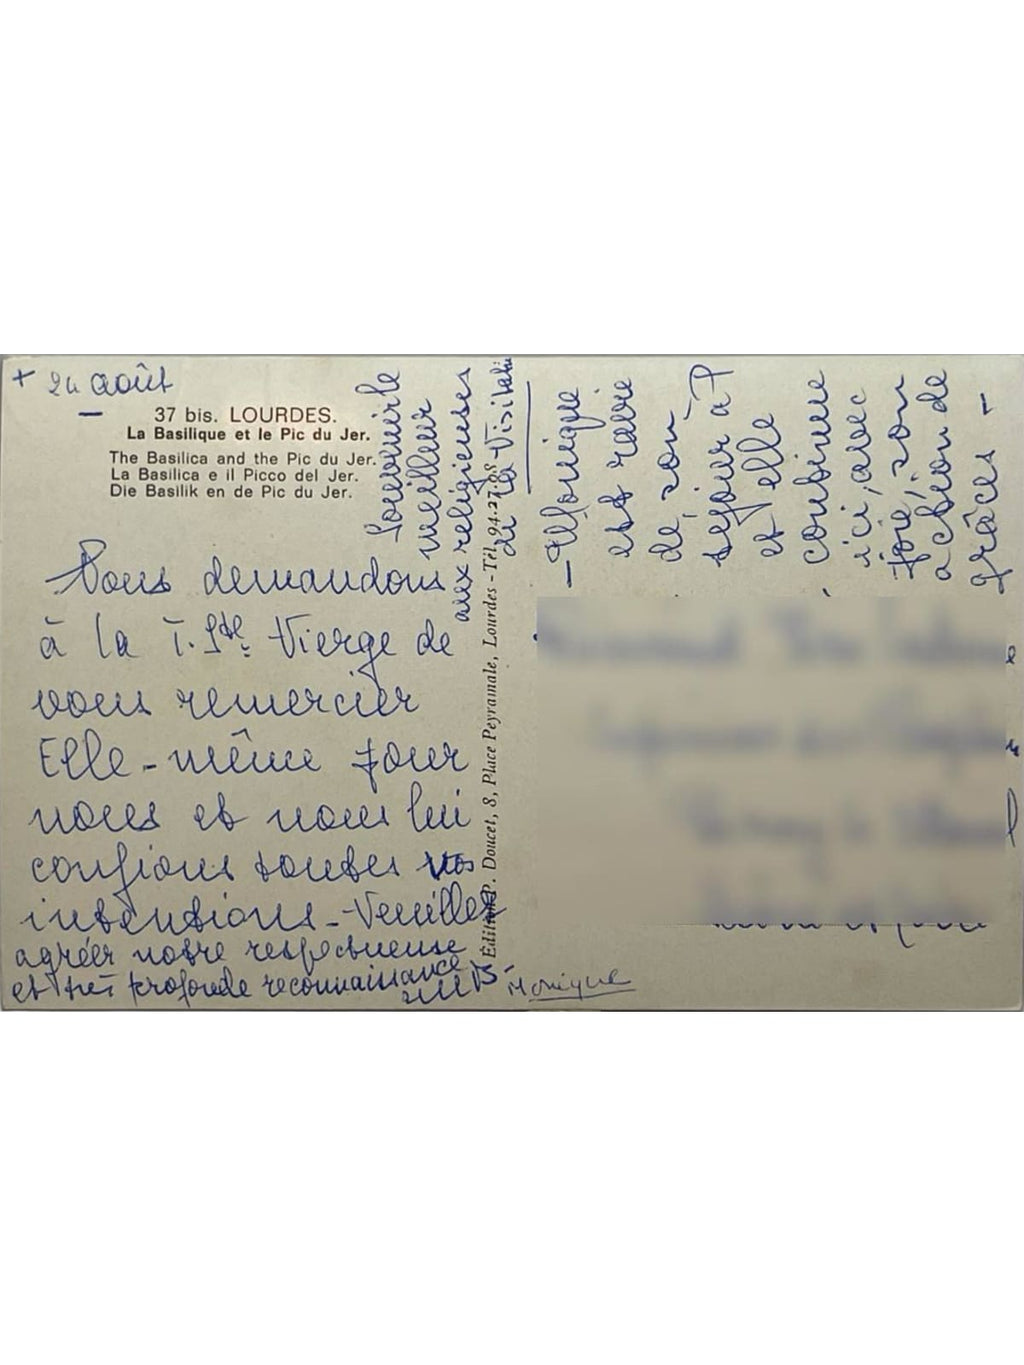 + 24 août
37 bis. LOURDES.
La Basilique et le Pic du Jer.
The Basilica and the Pic du Jer.
La Basilica e il Picco del Jer.
Die Basilik en de Pic du Jer.
Nous demandons
à la T. Ste. Vierge de
vous remercier
Elle-même pour
nous et nous lui
confions toutes vos
intentions - Veuillez
agréer notre respectueuse
et très profonde reconnaissance
Monique
Souvenir le
meilleur
aux religieuses
de la Visitation
Éditions P. Doucet, 8, Place Peyramale, Lourdes - Tél. 94.27.08
- Monique
est ravie
de son
séjour à P
et elle
continue
ici, avec
joie, son
action de
grâces -